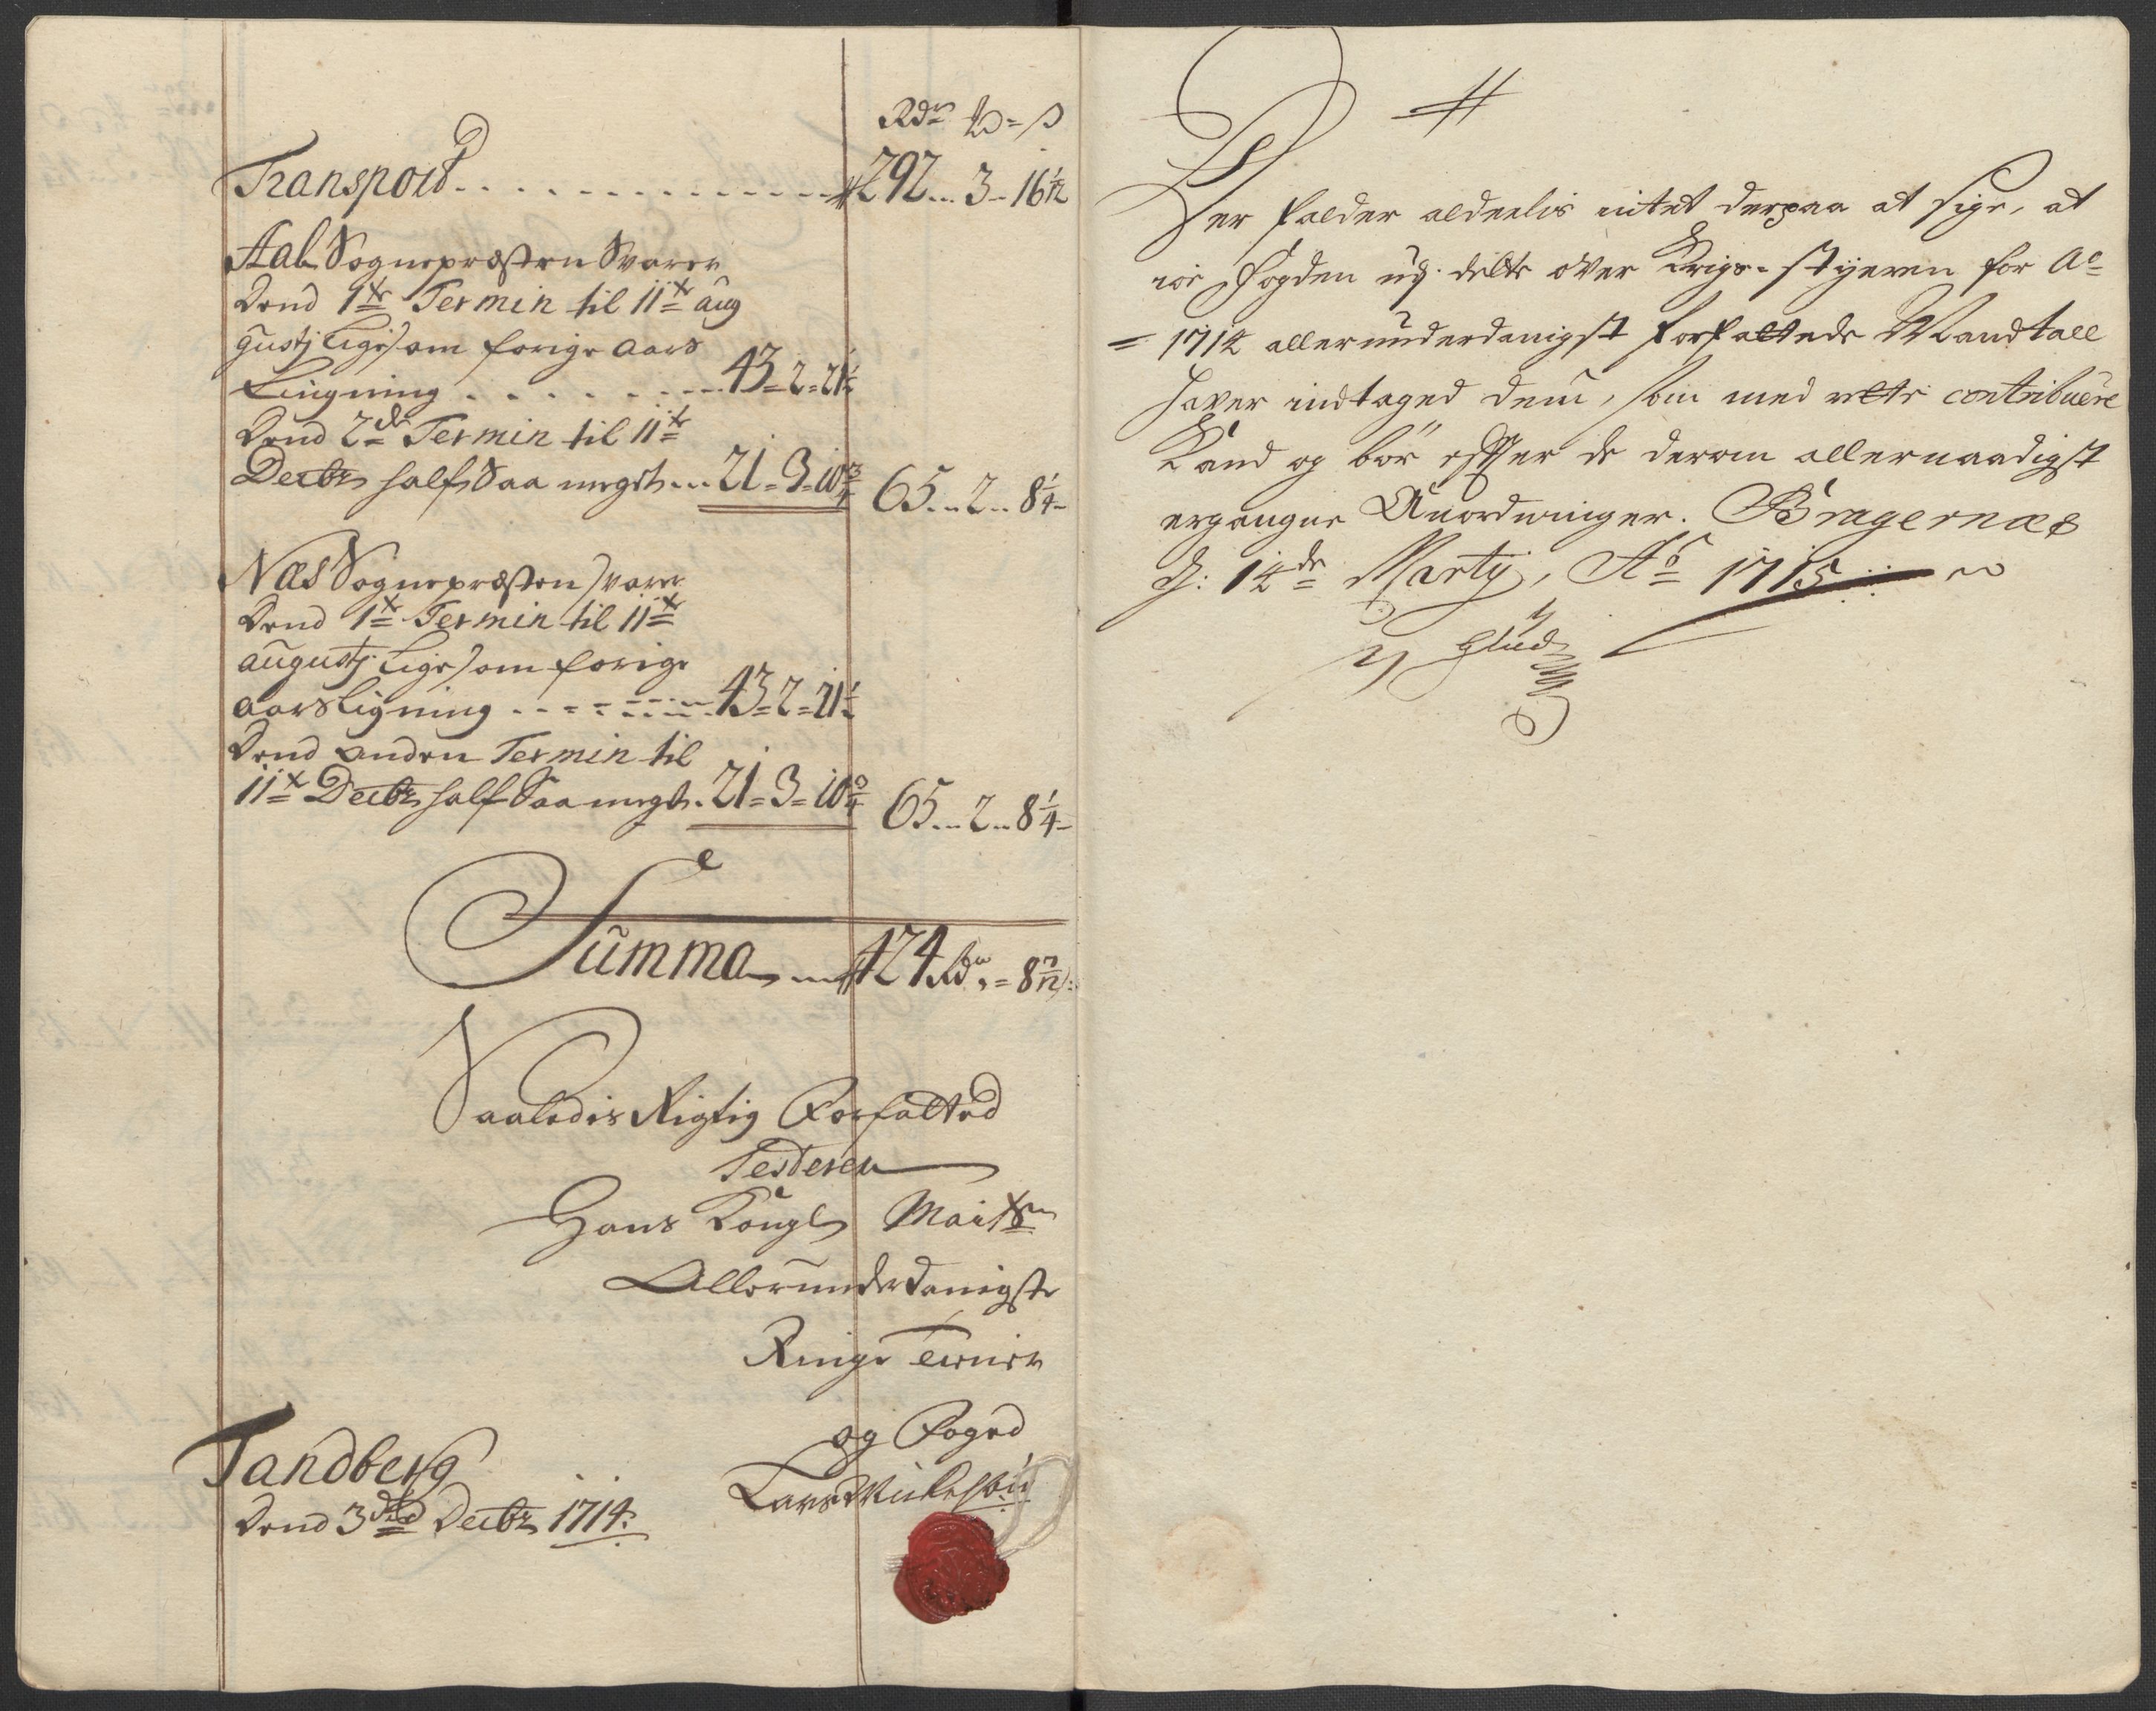 Rdr ℔ ß
Transport . . . . . . . . . . . . . 292 .. 3 .. 16 1/12
Aal Sognepræsten Svarer
Dend 1te Termin til 11te aug
gustj ligesom forige aars
Ligning . . . . . . . 43 = 2 = 21 1/2
Dend 2de Termin til 11te
Decbr half Saa megit ... 21 = 3 = 10 3/4 65 .. 2 .. 8 1/4
Næs Sognepræsten Svarer
Dend 1te Termin til 11te
augustj ligesom forige
aars Ligning . . . . . . 43 = 2 = 21 1/2
Dend anden Termin til
11te Decbr half Saa megit . 21 = 3 = 10 3/4 65 .. 2 .. 8 1/4
Summa 424 Rdr = 8 7/12 ß:
Saaledis Rigtig Forfatted
Testerer
Hans Kongl Maitts
Allerunderdanigste
Ringe Tienner
og Foged
Tandberg
Dend 3die Decbr 1714.
Her falder aldeelis intet derpaa at sige, at
io Fogden udj dette over Krigs-Styeren for Ao
= 1714 allerunderdanigst forfattede Mandtall
haver indtaged dem, som med rette contribuere
Kand og bör efter de derom allernaadigst
ergangne Anordninger. Bragernæs
d: 14de Martij, Ao 1715
Glud